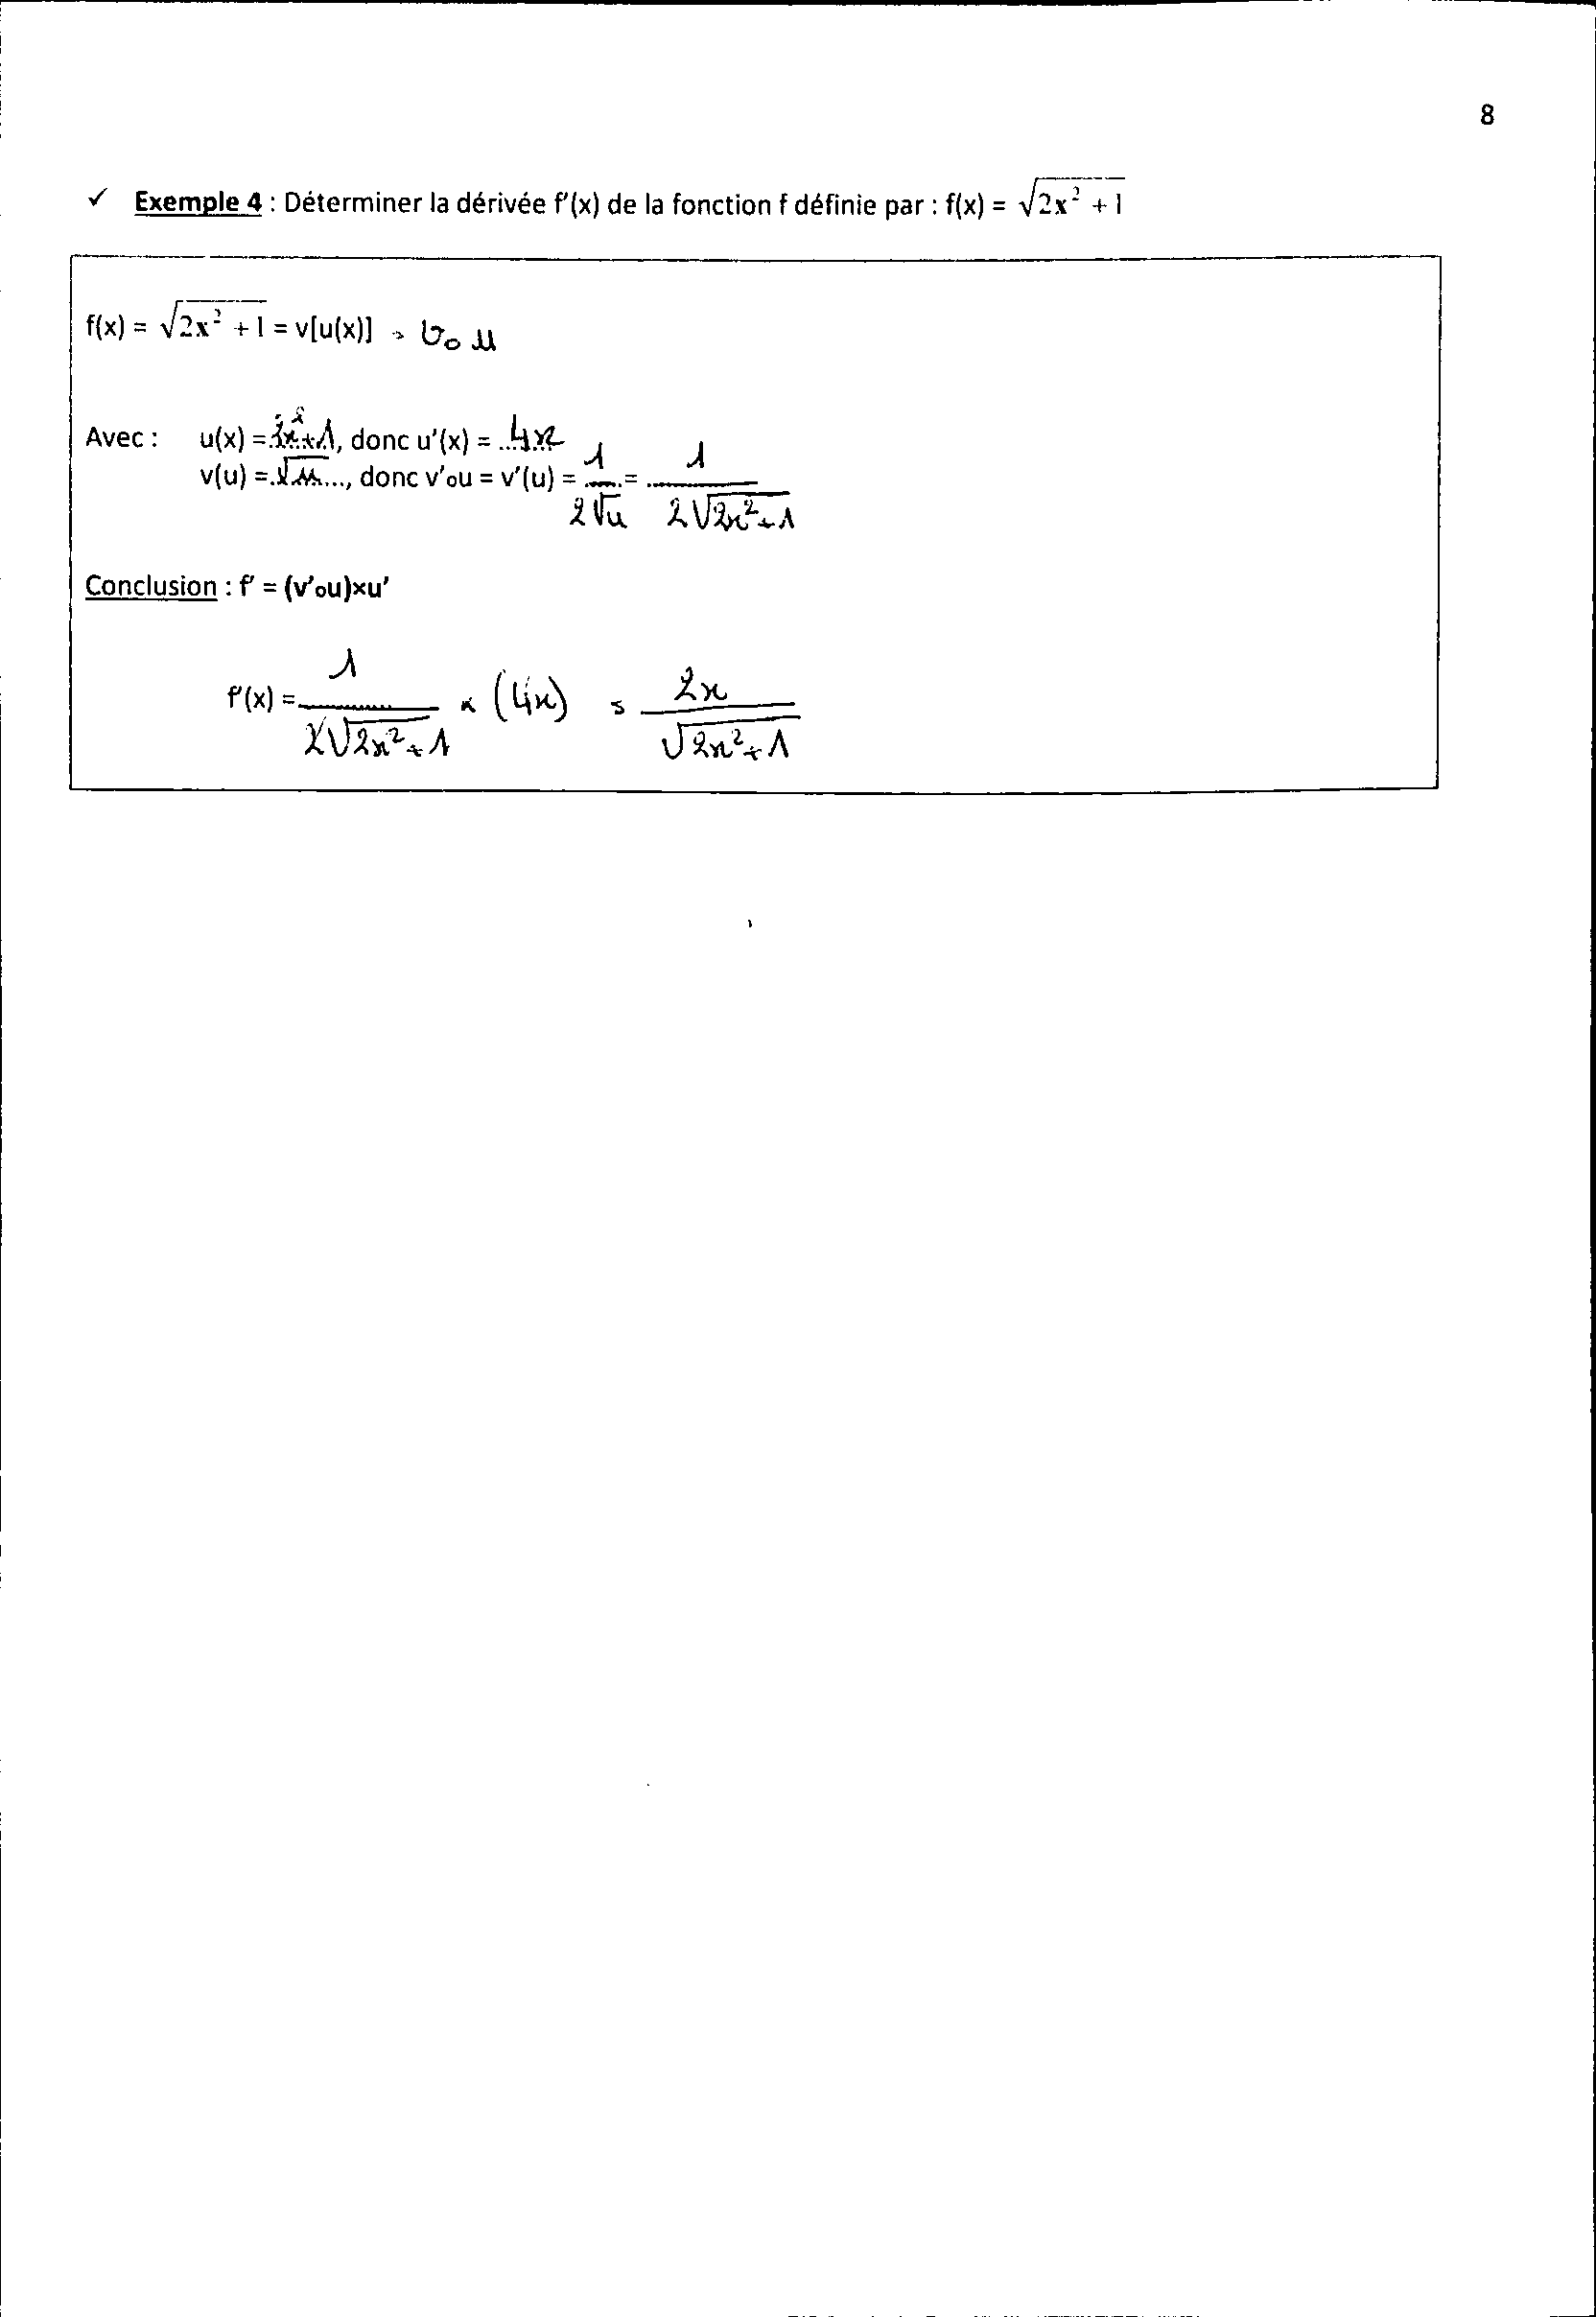 8
✓ Exemple 4 : Déterminer la dérivée f'(x) de la fonction f définie par : f(x) = √(2x² + 1)
f(x) = √(2x² + 1) = v[u(x)] = v∘u
Avec : u(x) = 2x²+1, donc u'(x) = 4x
v(u) = √u, donc v'∘u = v'(u) = 1/(2√u) = 1/(2√(2x²+1))
Conclusion : f' = (v'∘u)×u'
f'(x) = 1/(2√(2x²+1)) × (4x) = 2x/√(2x²+1)